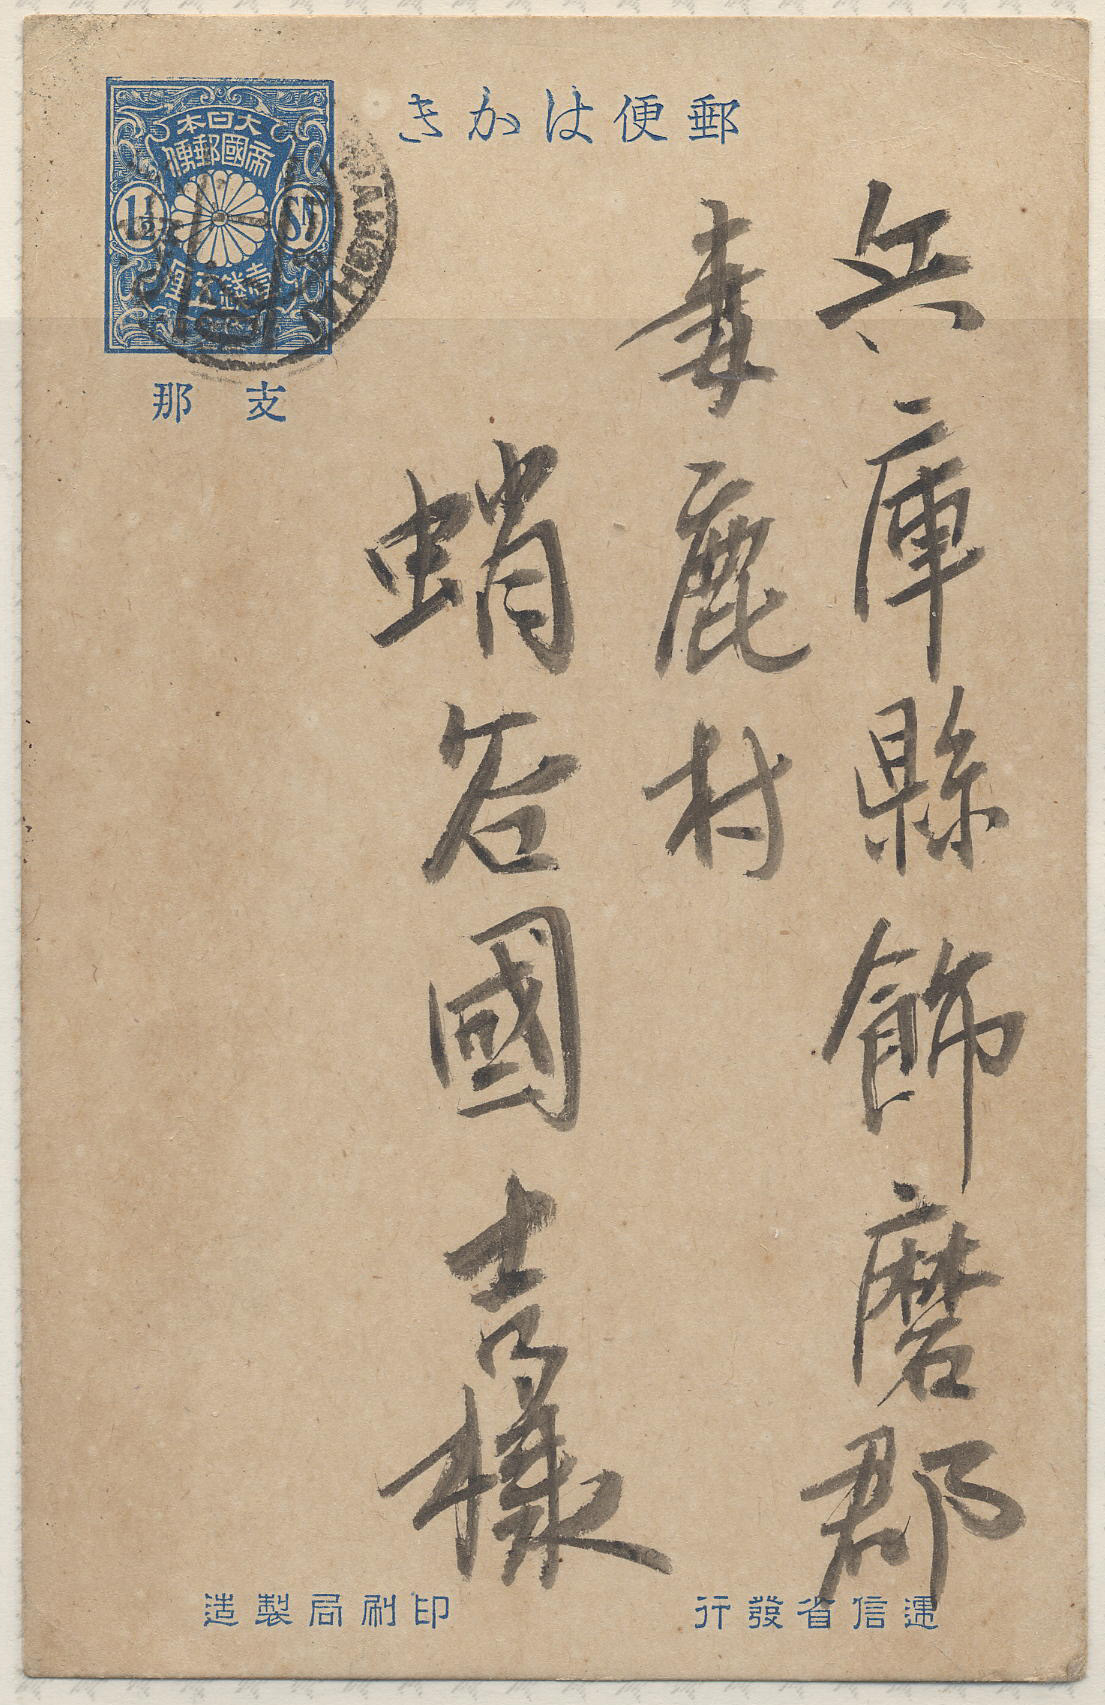 郵便はかき
大日本
帝國郵便
1½
SN
壹錢五厘
支那
兵庫縣飾磨郡
妻鹿村
蛸谷國吉様
遞信省發行
印刷局製造